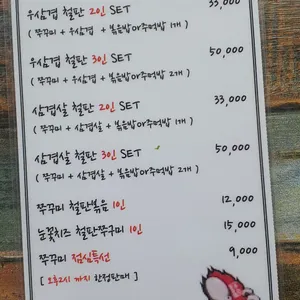 우삼겹 철판 2인 SET 33,000
( 쭈꾸미 + 우삼겹 + 볶음밥or주먹밥 1개 )
우삼겹 철판 3인 SET 50,000
( 쭈꾸미 + 우삼겹 + 볶음밥or주먹밥 2개 )
삼겹살 철판 2인 SET 33,000
( 쭈꾸미 + 삼겹살 + 볶음밥or주먹밥 1개 )
삼겹살 철판 3인 SET 50,000
( 쭈꾸미 + 삼겹살 + 볶음밥or주먹밥 2개 )
쭈꾸미 철판볶음 1인 12,000
눈꽃치즈 철판쭈꾸미 1인 15,000
쭈꾸미 점심특선 9,000
[ 오후2시 까지 한정판매 ]